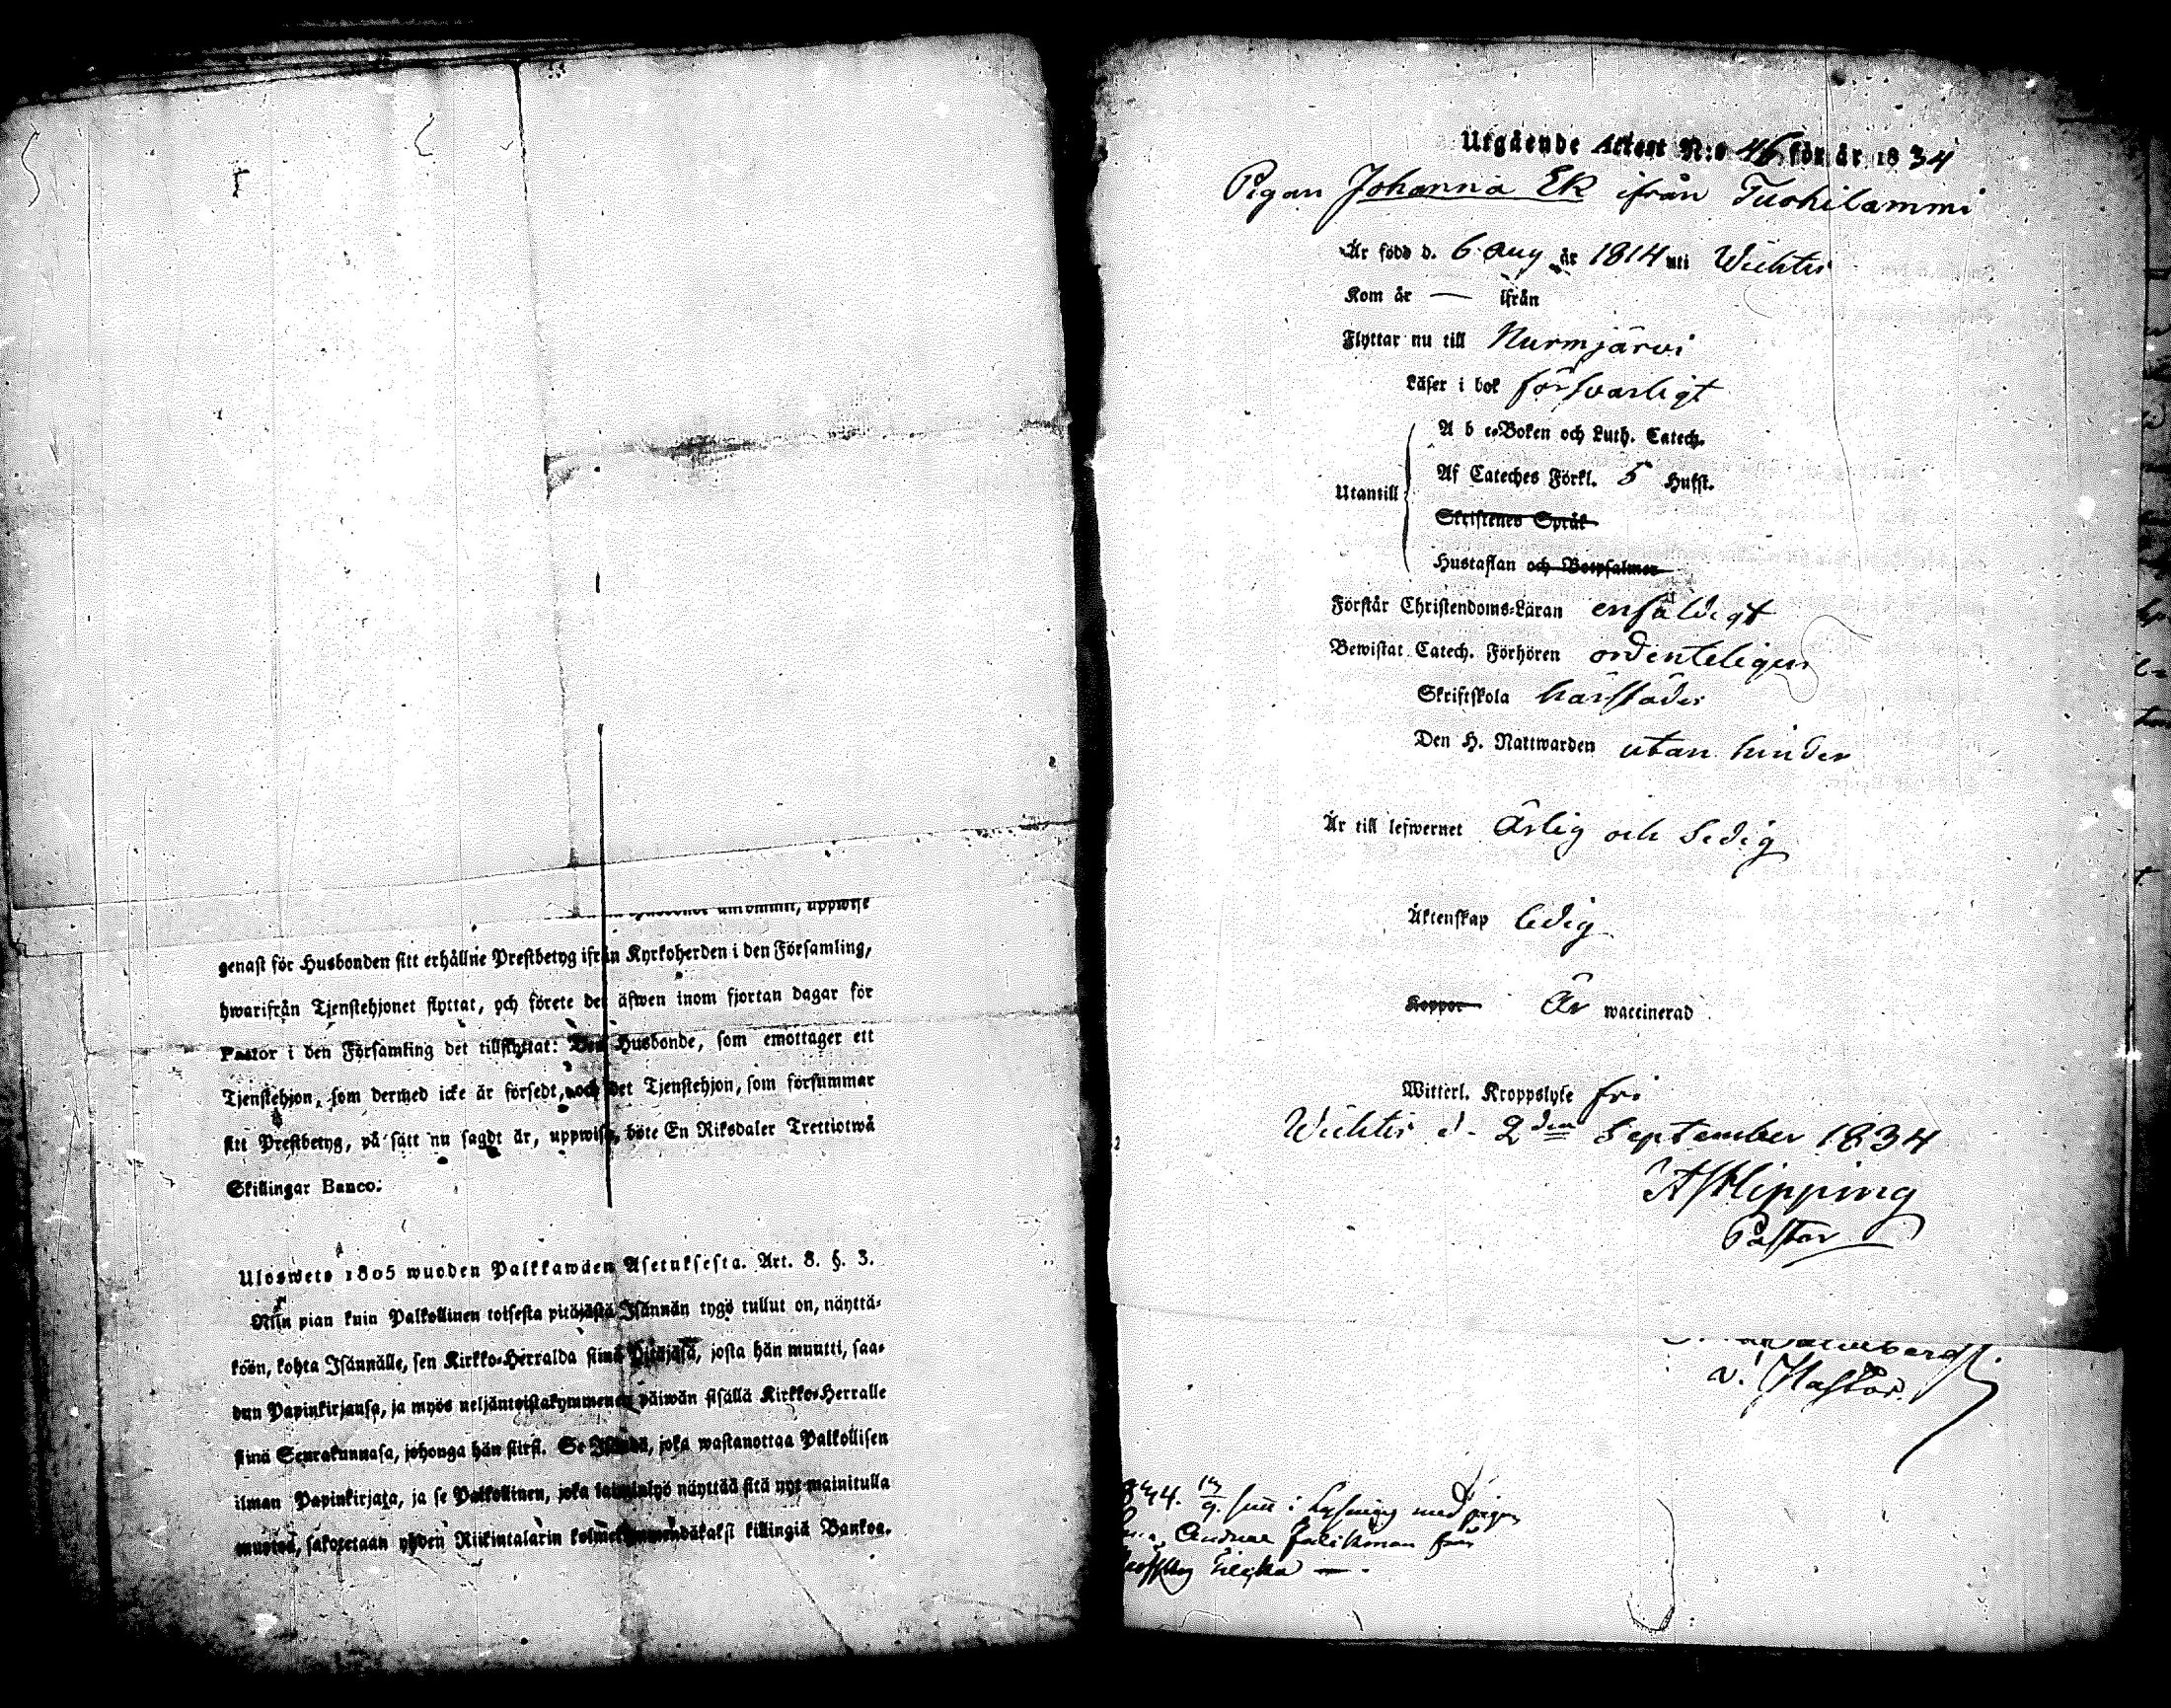 uppwise
genast för Husbonden sitt erhållne Prestbetyg ifrån Kyrkoherden i den Församling,
hwarifrån Tjenstehjonet flyttat, och förete det äfwen inom fjortan dagar för
Pastor i den Församling det tillflyttat: Den Husbonde, som emottager ett
Tjenstehjon, som dermed icke är försedt, och det Tjenstehjon, som försummar
sitt Prestbetyg, på sätt nu sagdt är, uppwisa, böte En Riksdaler Trettiotwå
Skillingar Banco.
Ulosweto 1805 wuoden Palkkawäen Asetuksesta. Art. 8. §. 3.
Niin pian kuin Palkollinen toisesta pitäjästä Isännän tygö tullut on, näyttä-
köön, kohta Isännälle, sen Kirkko-Herralda siinä Pitäjäsä, josta hän muutti, saa-
dun Papinkirjansa, ja myös neljäntoistakymmenen päiwän sisällä Kirkko-Herralle
siinä Seurakunnasa, johonga hän siirsi. Se Isändä, joka wastanottaa Palkollisen
ilman Papinkirjata, ja se Palkollinen, joka laiminlyö näyttää sitä nyt mainitulla
muotoa, sakotetaan yhden Riikintalarin kolmekymmendäkaksi killingiä Bankoa.
Utgående Attest N:o 46 för år 1834
Pigan Johanna Ek ifrån Tuohilammi
Är född d. 6 Aug år 1814 uti Wichtis
Kom år — ifrån
Flyttar nu till Nurmjärvi
Läser i bok försvarligt
A b c-Boken och Luth. Catech.
Af Cateches Förkl. 5 Hufst.
Utantill
Skriftenes Språk
Hustaflan och Botpsalmer
Förstår Christendoms-Läran enfäldigt
Bewistat Catech. Förhören ordenteligen
Skriftskola härstädes
Den H. Nattwarden utan hinder
Är till lefwernet Ärlig och Sedig
Äktenskap ledig
Koppor Är waccinerad
Witterl. Kroppslyte fri
Wichtis d. 2den September 1834
Hipping
Pastor
v. Pastor.
i Lysning med pigan
från